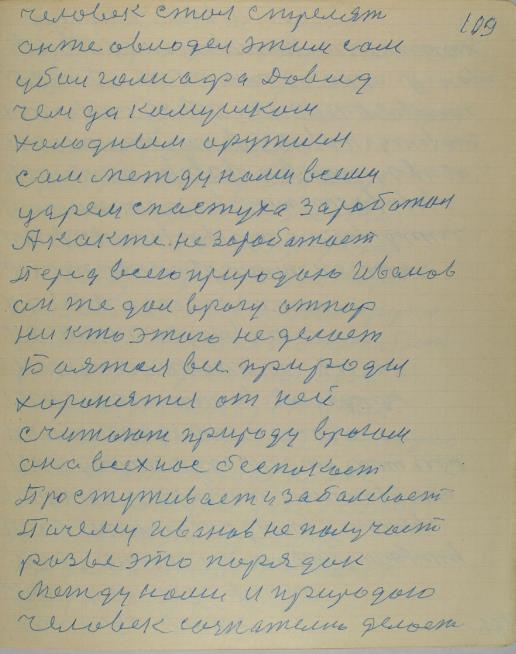 109
человек стал стрелят
он же овлодел этим сам
убил голиафа Довид
чем да комушком
холодным оружием
сам между нами всеми
царем спастуха заработал
А как же не заработает
Перед всею природаю Иванов
он же дал врагу отпор
ни кто этого не делает
Боятся все природы
хоронятся от ней
считают природу врагом
она всех нас беспокоет
Простуживает и заболевает
Почему Иванов не получает
розве это порядок
между нами и природою
человек сознателно делает